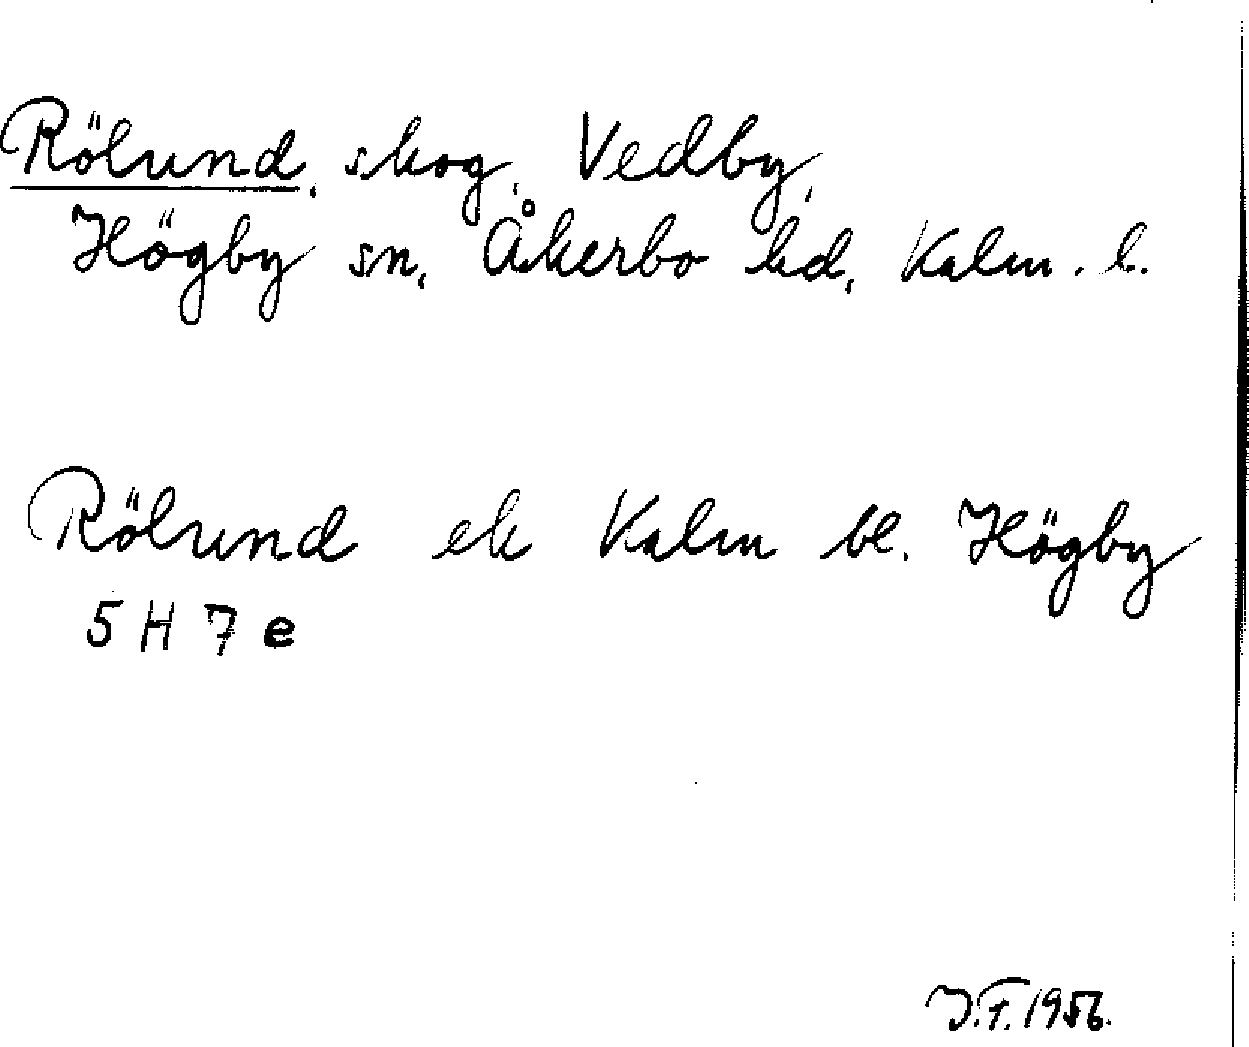 Rölund, skog, Vedby,
Högby sn, Åkerbo hd, Kalm. l.
Rölund ek Kalm bl. Högby
5 H 7 e
J.F. 1956.